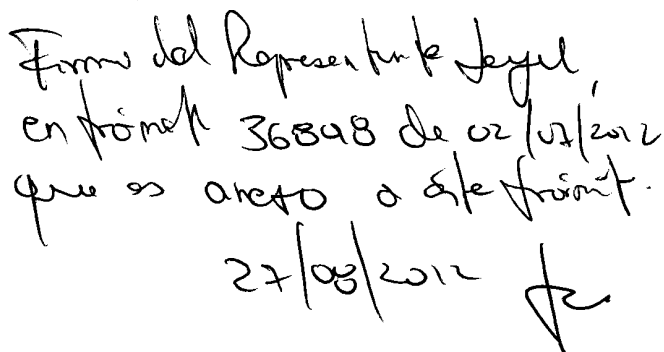 Firma del Representante Legal,
en trámite 36898 de 02/07/2012
que es anexo a éste trámite.
27/08/2012